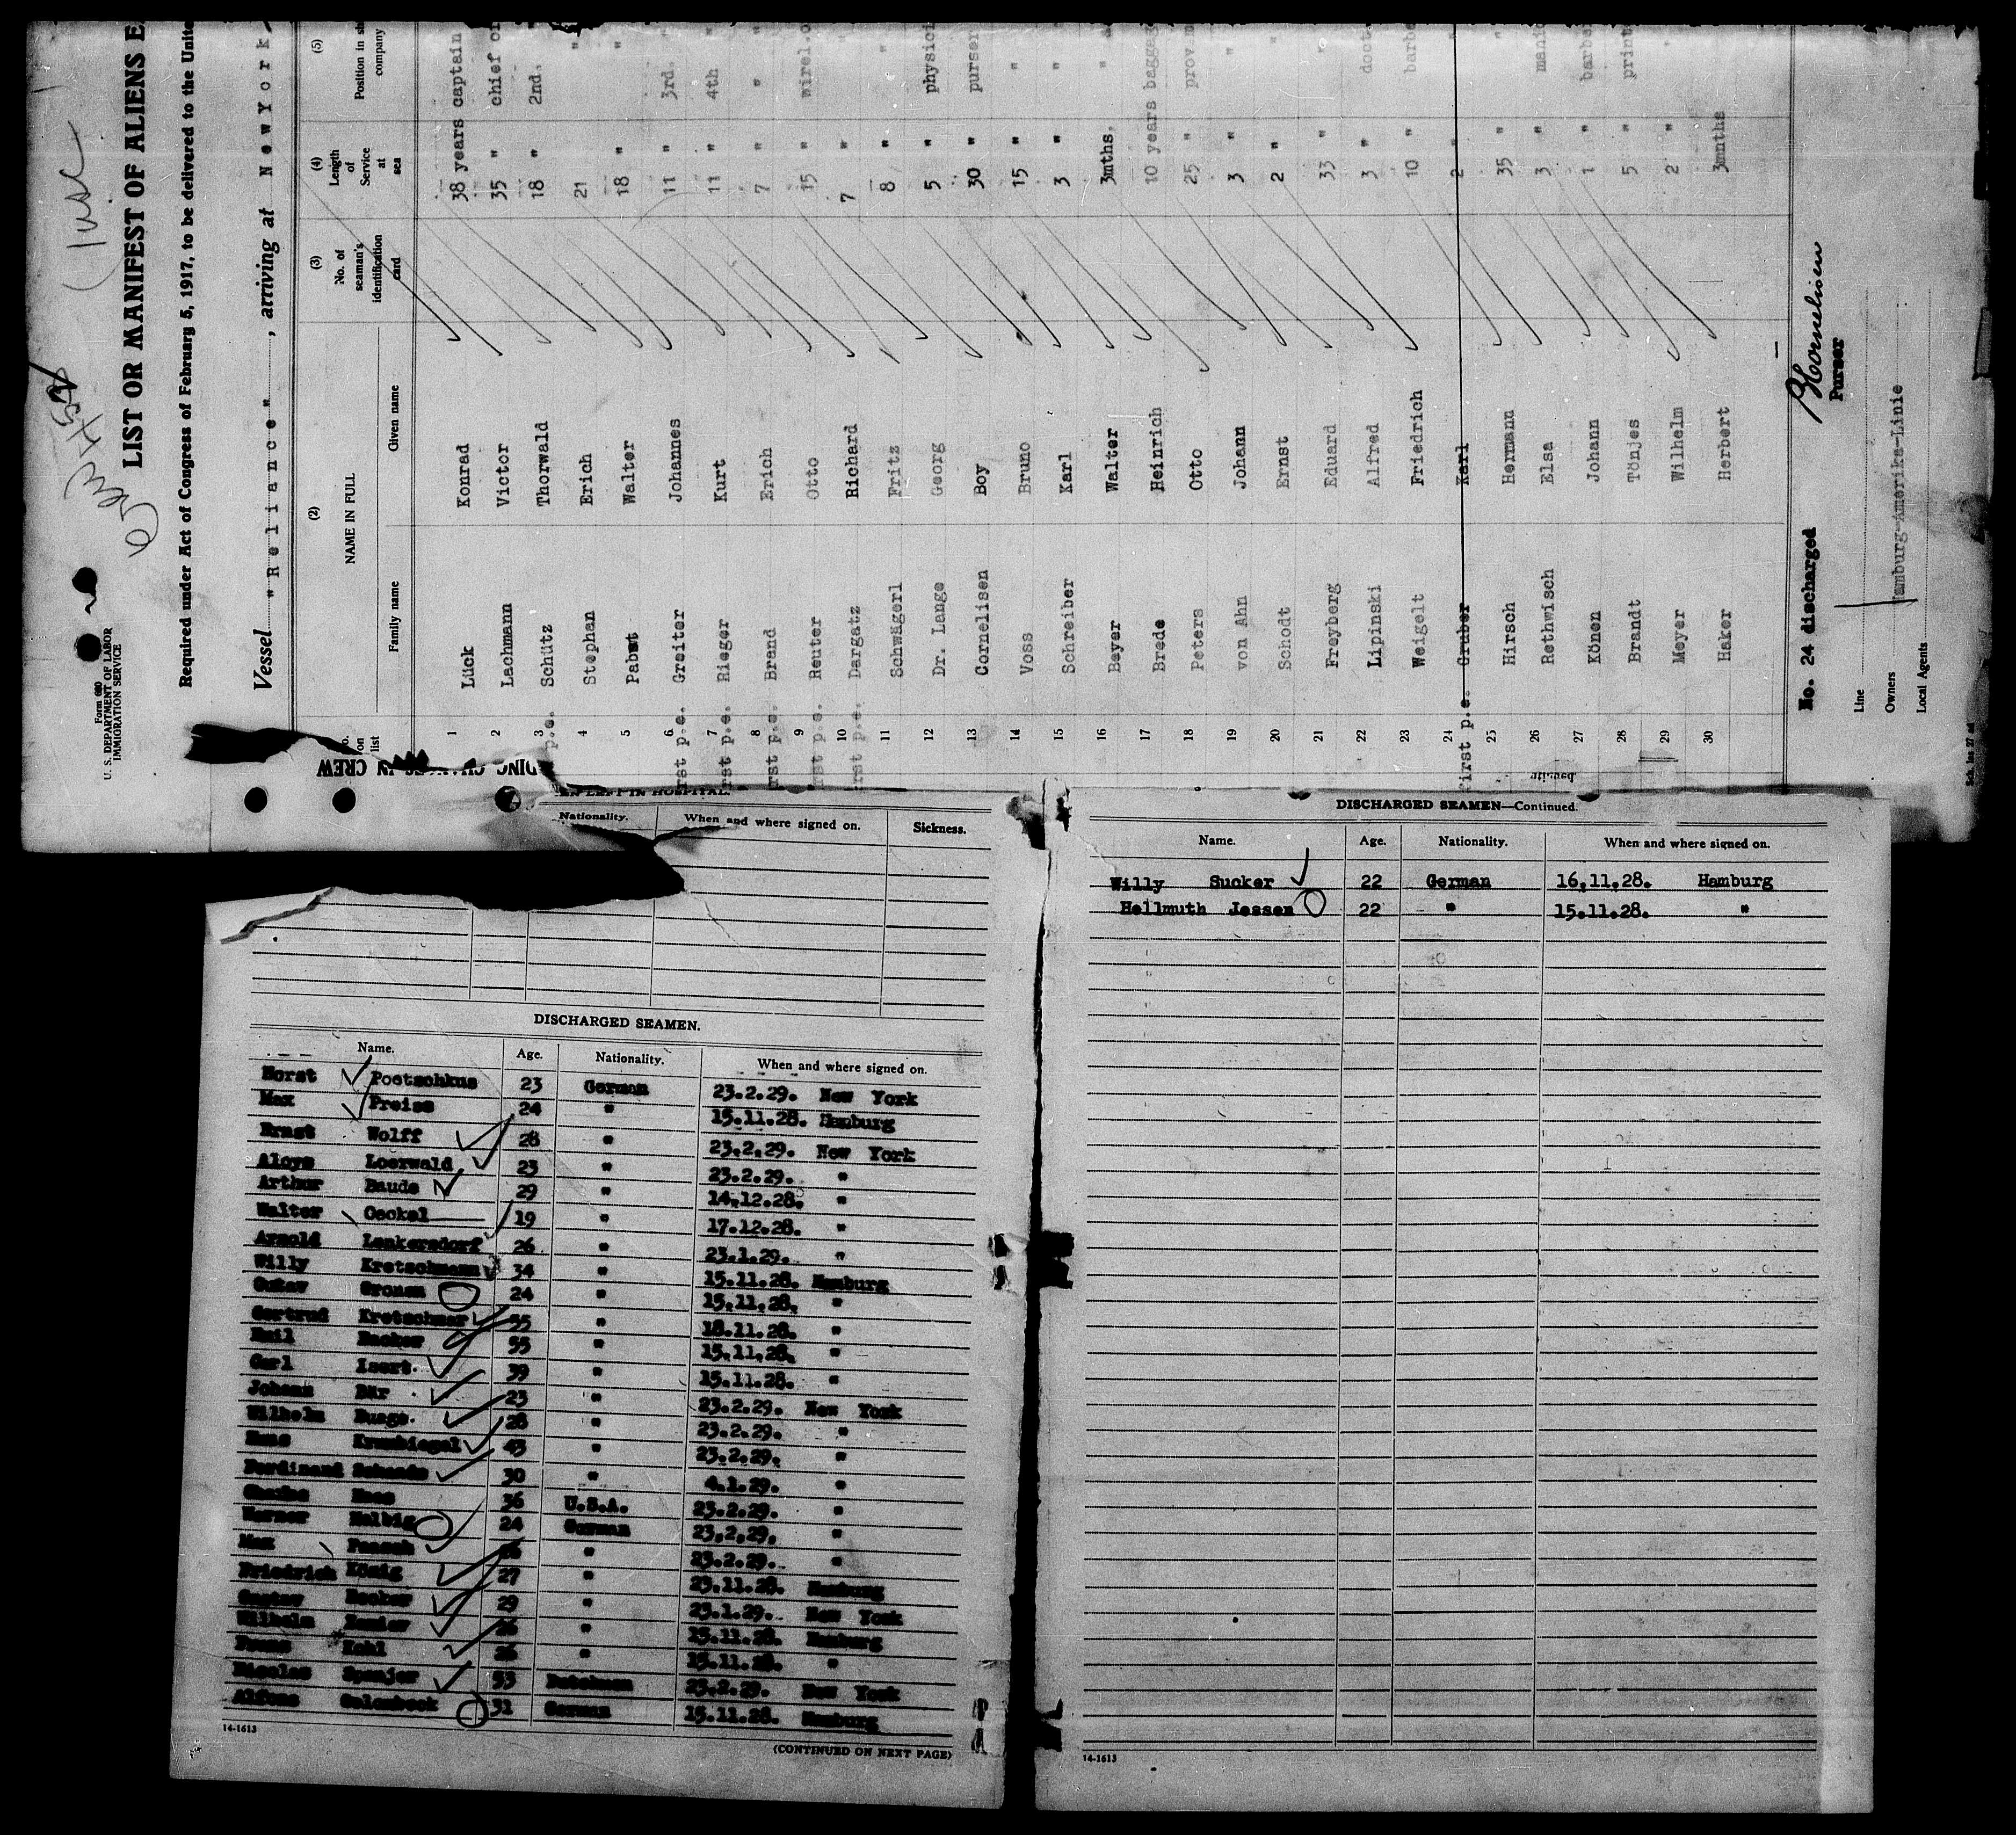 Form 680
U. S. DEPARTMENT OF LABOR
IMMIGRATION SERVICE
LIST OR MANIFEST OF ALIENS E
Required under Act of Congress of February 5, 1917, to be delivered to the Unite
Vessel "Reliance", arriving at New York,
(2) (3) (4) (5)
list NAME IN FULL No. of seaman's identification card Length of Service at sea Position in sh company
Family name Given name
1 Lück Konrad 38 years captain
2 Lachmann Victor 35 " chief o
3 p.e. Schütz Thorwald 18 " 2nd. "
4 Stephan Erich 21 "
5 Pabst Walter 18 " "
6 rst p.e. Greiter Johannes 11 " 3rd. "
7 rst p.e. Rieger Kurt 11 " 4th "
8 rst p.e. Brand Erich 7 " " "
9 rst p.e. Reuter Otto 15 " wirel.o
10 rst p.e. Dargatz Richard 7 " "
11 Schwägerl Fritz 8 " "
12 Dr. Lange Georg 5 " physici
13 Cornelisen Boy 30 " purser
14 Voss Bruno 15 " " "
15 Schreiber Karl 3 " " "
16 Beyer Walter 3mths. " "
17 Brede Heinrich 10 years baggag
18 Peters Otto 25 " prov m
19 von Ahn Johann 3 " "
20 Schodt Ernst 2 " "
21 Freyberg Eduard 33 " "
22 Lipinski Alfred 3 " doct
23 Weigelt Friedrich 10 " barbe
24 first p.e. Gruber Karl 2 " "
25 Hirsch Hermann 35 " "
26 Rethwisch Elsa 3 " mani
27 Könen Johann 1 " barbe
28 Brandt Tönjes 5 " print
29 Meyer Wilhelm 2 " "
30 Haker Herbert 3mnths
No. 24 discharged
BCornelisen
Purser
Line
Owners Hamburg-Amerika-Linie
Local Agents
IN CREW
EN LEFT IN HOSPITAL.
Nationality. When and where signed on. Sickness.
DISCHARGED SEAMEN.
Name. Age. Nationality. When and where signed on.
Horst Poetschkus 23 German 23.2.29. New York
Max Preiss 24 " 15.11.28. Hamburg
Ernst Wolff 28 " 23.2.29. New York
Aloys Loerwald 23 " 23.2.29. "
Arthur Baude 29 " 14.12.28. "
Walter Geckel 19 " 17.12.28. "
Arnold Lenkersdorf 26 " 23.1.29. "
Willy Kretschmann 34 " 15.11.28. Hamburg
Gustav Gronen 24 " 15.11.28. "
Gertrud Kretschmer 35 " 18.11.28. "
Emil Becker 55 " 15.11.28. "
Carl Isert. 39 " 15.11.28. "
Johann Bär 23 " 23.2.29. New York
Wilhelm 28 " 23.2.29. "
Hans Krumbiegel 43 " 23.2.29. "
Ferdinand 30 " 4.1.29. "
Charles 36 U.S.A. 23.2.29. "
Werner Helbig 24 German 23.2.29. "
Max Paasch " 23.2.29. "
Friedrich König 27 " 23.11.28. Hamburg
Gustav Becker 29 " 23.1.29. New York
Wilhelm 26 " 15.11.28. Hamburg
Franz Kohl 26 " 15.11.28. "
Nicolas Spanjer 53 Dutchman 23.2.29. New York
Alfons Golombeck 31 German 15.11.28. Hamburg
14-1613
(CONTINUED ON NEXT PAGE)
DISCHARGED SEAMEN—Continued.
Name. Age. Nationality. When and where signed on.
Willy Sucker 22 German 16.11.28. Hamburg
Hellmuth Jessen 22 " 15.11.28. "
14-1613